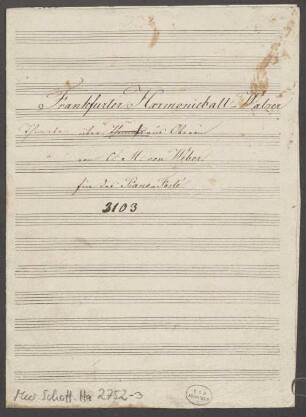 Frankfurter Harmonieball-Walzer
über Themas aus Oberon
von C. M. von Weber
für das Piano-Forte
3103
Mus. Schott. Ha 2752-3